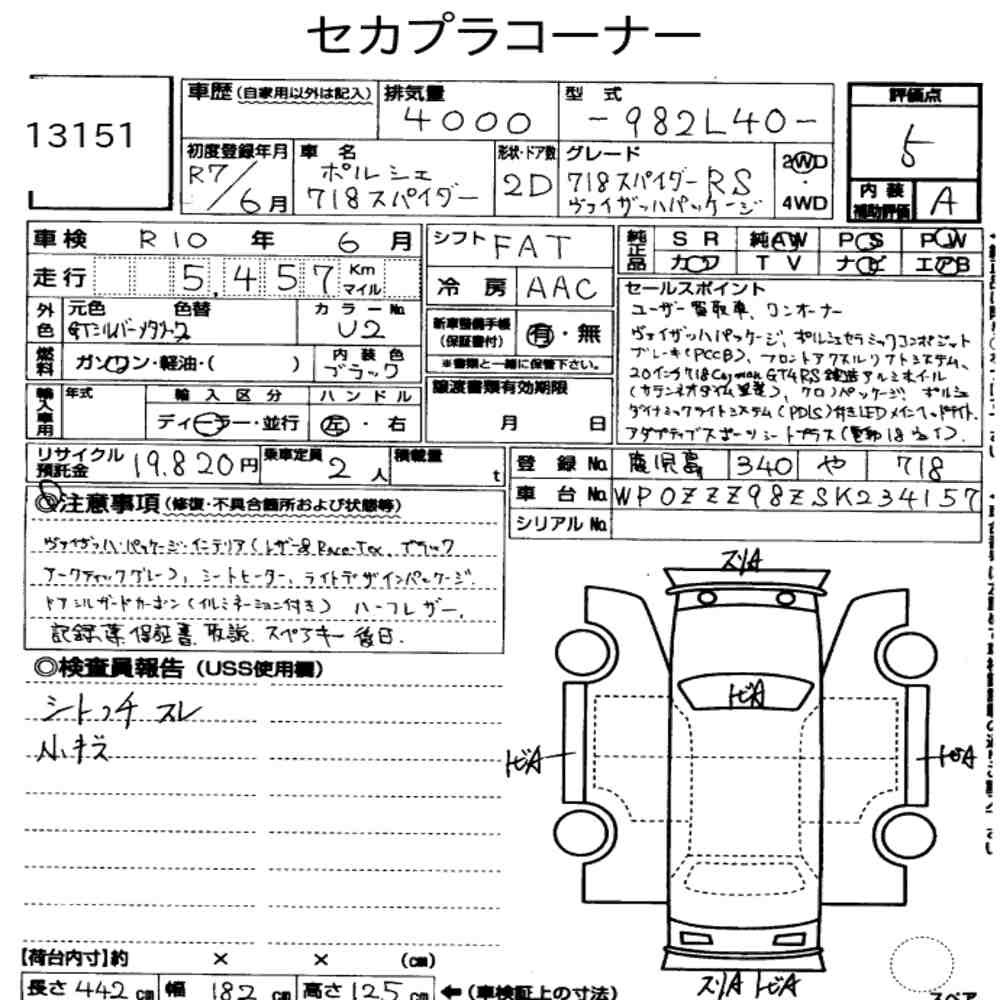 セカプラコーナー
13151
車歴 (自家用以外は記入)
排気量 4000
型式 -982L40-
評価点 5
初度登録年月 R7/6月
車名 ポルシェ 718スパイダー
形状・ドア数 2D
グレード 718スパイダーRS ヴァイザッハパッケージ
2WD・4WD
内装補助評価 A
車検 R10年 6月
シフト FAT
純正品 SR 純AW PS PW
カワ TV ナビ エアB
走行 5,457 Km マイル
冷房 AAC
外色 元色 色替 GTシルバーメタリック
カラーNo. U2
新車整備手帳(保証書付) 有・無
※書類と一緒に保管下さい。
燃料 ガソリン・軽油・( )
内装色 ブラック
輸入車用 年式 輸入区分 ディーラー・並行
ハンドル 左・右
譲渡書類有効期限 月 日
セールスポイント
ユーザー買取車、ワンオーナー
ヴァイザッハパッケージ、ポルシェセラミックコンポジット
ブレーキ(PCCB)、フロントアクスルリフトシステム、
20インチ718Cayman GT4RS鍛造アルミホイール
クロノパッケージ ポルシェ
ダイナミックライトシステム(PDLS)付きLEDメインヘッドライト、
アダプティブスポーツシートプラス(電動18way).
リサイクル預託金 19.820円
乗車定員 2人
積載量 t
登録No. 鹿児島 340 や 718
車台No. WP0ZZZ98ZSK234157
シリアルNo.
◎注意事項 (修復・不具合箇所および状態等)
ヴァイザッハ・パッケージ・インテリア(レザー&Race-Tex、ブラック
アークティックグレー)、シートヒーター、ライトデザインパッケージ.
ドアシルガードカーボン(イルミネーション付き) ハーフレザー.
記録簿 保証書 取説 スペアキー 後日.
◎検査員報告 (USS使用欄)
シートつチ スレ
小キズ
スリA
トビA
トビA
トビA
スリA トビA
【荷台内寸】約 × × (cm)
長さ 442 cm 幅 182 cm 高さ 125 cm ←(車検証上の寸法)
スペア